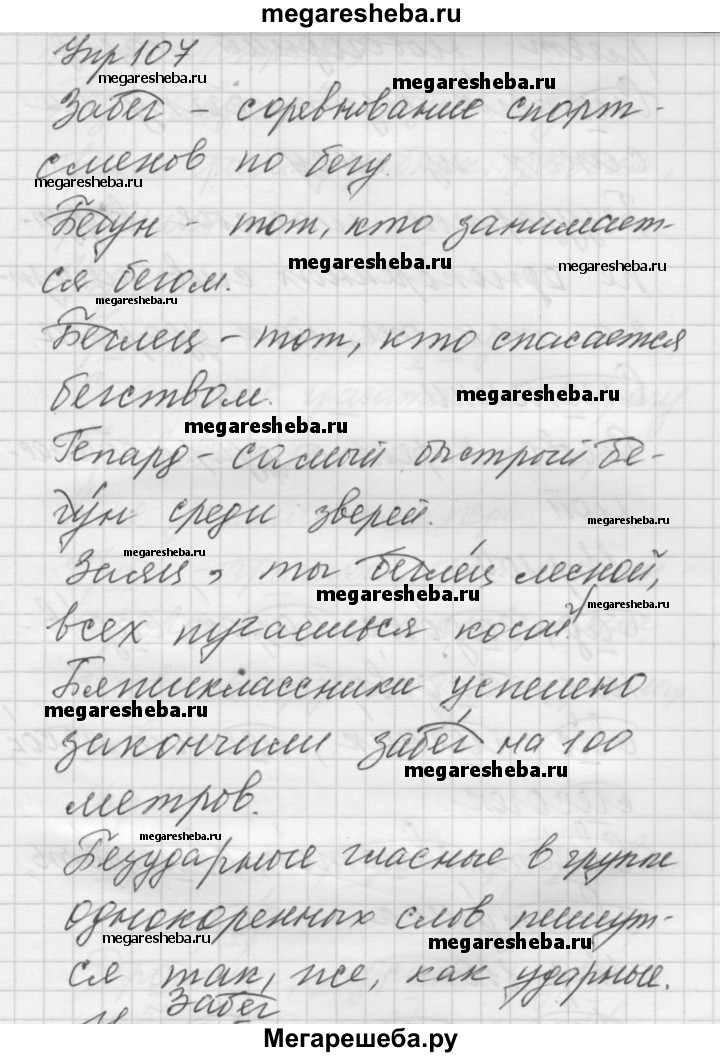 megaresheba.ru
Упр 107
megaresheba.ru
megaresheba.ru
Забег - соревнование спорт-
сменов по бегу.
megaresheba.ru
Бегун - тот, кто занимает-
megaresheba.ru
megaresheba.ru
ся бегом.
megaresheba.ru
Беглец - тот, кто спасается
бегством.
megaresheba.ru
megaresheba.ru
Гепард - самый быстрый бе-
гун среди зверей.
megaresheba.ru
megaresheba.ru
Заяц, ты беглец лесной,
megaresheba.ru
megaresheba.ru
всех пугаешься косой!
Пятиклассники успешно
megaresheba.ru
закончили забег на 100
megaresheba.ru
метров.
megaresheba.ru
Безударные гласные в группе
однокоренных слов пишут-
megaresheba.ru
megaresheba.ru
ся так, же, как ударные.
Забег
Мегарешеба.ру